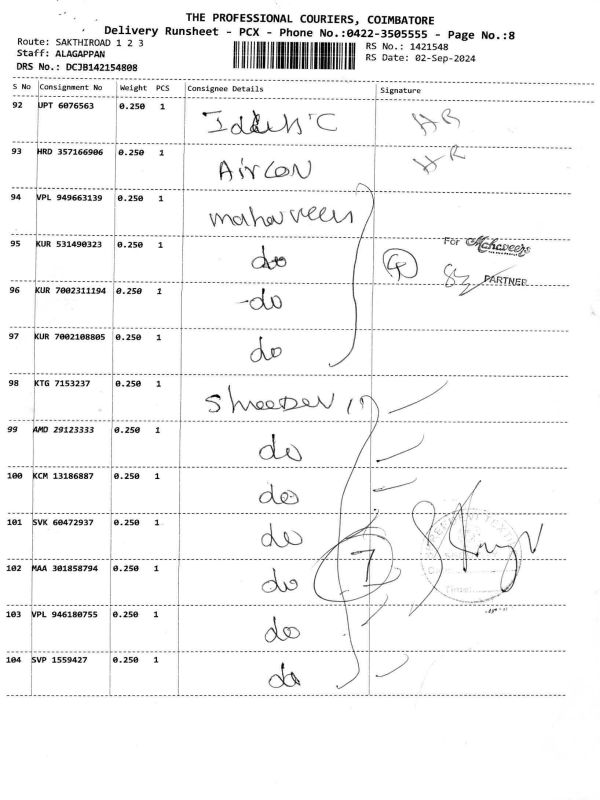 THE PROFESSIONAL COURIERS, COIMBATORE
Delivery Runsheet - PCX - Phone No.:0422-3505555 - Page No.:8
Route: SAKTHIROAD 1 2 3 RS No.: 1421548
Staff: ALAGAPPAN RS Date: 02-Sep-2024
DRS No.: DCJB142154808
S No Consignment No Weight PCS Consignee Details Signature
92 UPT 6076563 0.250 1
93 HRD 357166906 0.250 1 Aircon HR
94 VPL 949663139 0.250 1 mahaveer
95 KUR 531490323 0.250 1 do For Mahaveers
PARTNER
96 KUR 7002311194 0.250 1 -do
97 KUR 7002108805 0.250 1 do
98 KTG 7153237 0.250 1
99 AMD 29123333 0.250 1 do
100 KCM 13186887 0.250 1 do
101 SVK 60472937 0.250 1 do
102 MAA 301858794 0.250 1 do 7
103 VPL 946180755 0.250 1 do
104 SVP 1559427 0.250 1 do